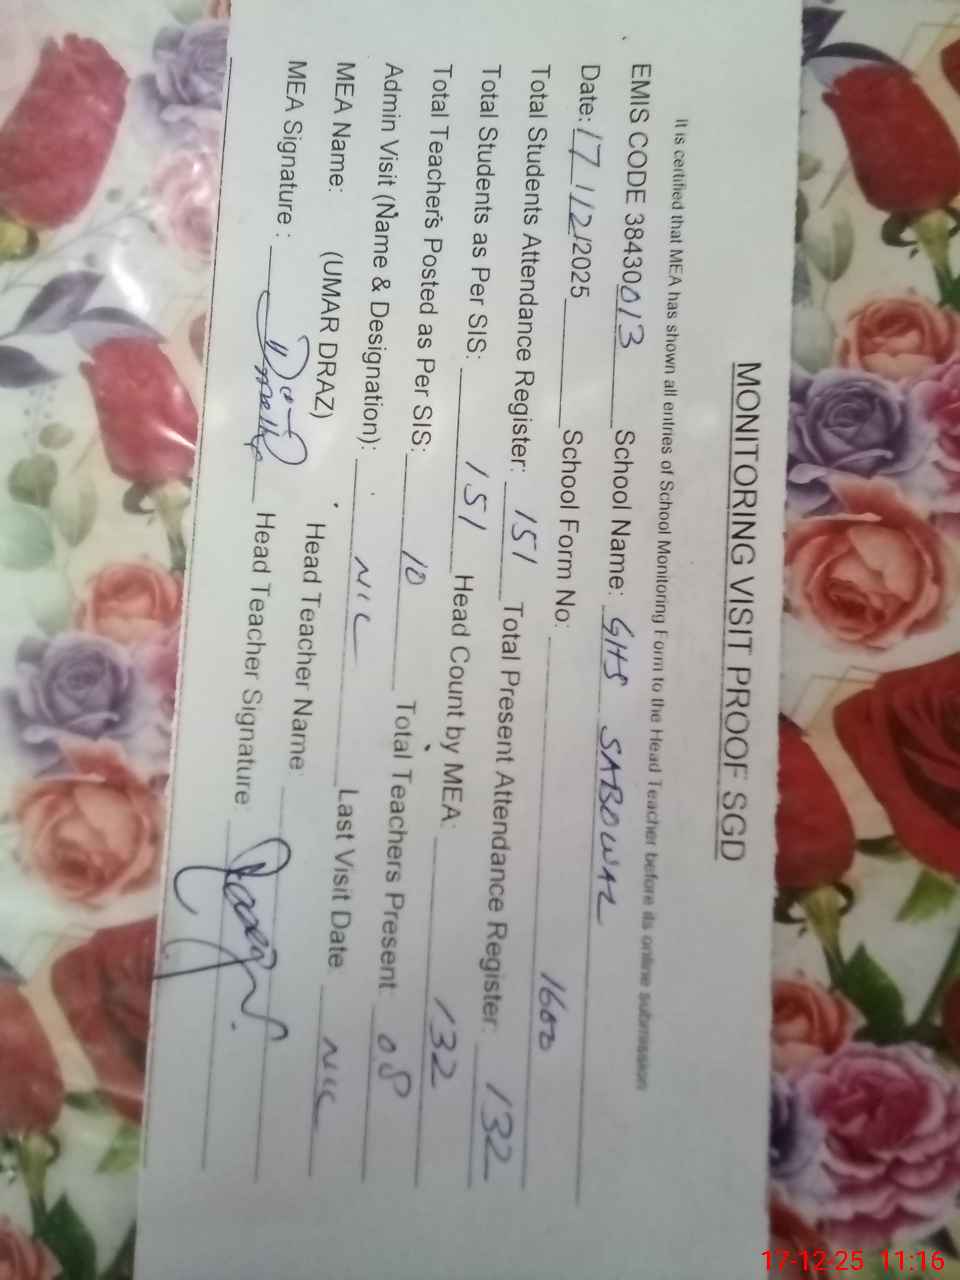 MONITORING VISIT PROOF SGD
It is certified that MEA has shown all entries of School Monitoring Form to the Head Teacher before its online submission
EMIS CODE 38430013 School Name: GHS SABOWAL
Date: 17/12/2025 School Form No: 1600
Total Students Attendance Register: 151 Total Present Attendance Register: 132
Total Students as Per SIS: 151 Head Count by MEA: 132
Total Teachers Posted as Per SIS: 10 Total Teachers Present: 08
Admin Visit (Name & Designation): NIL Last Visit Date: NIL
MEA Name: (UMAR DRAZ) Head Teacher Name:
MEA Signature : Head Teacher Signature:
17-12-25 11:16